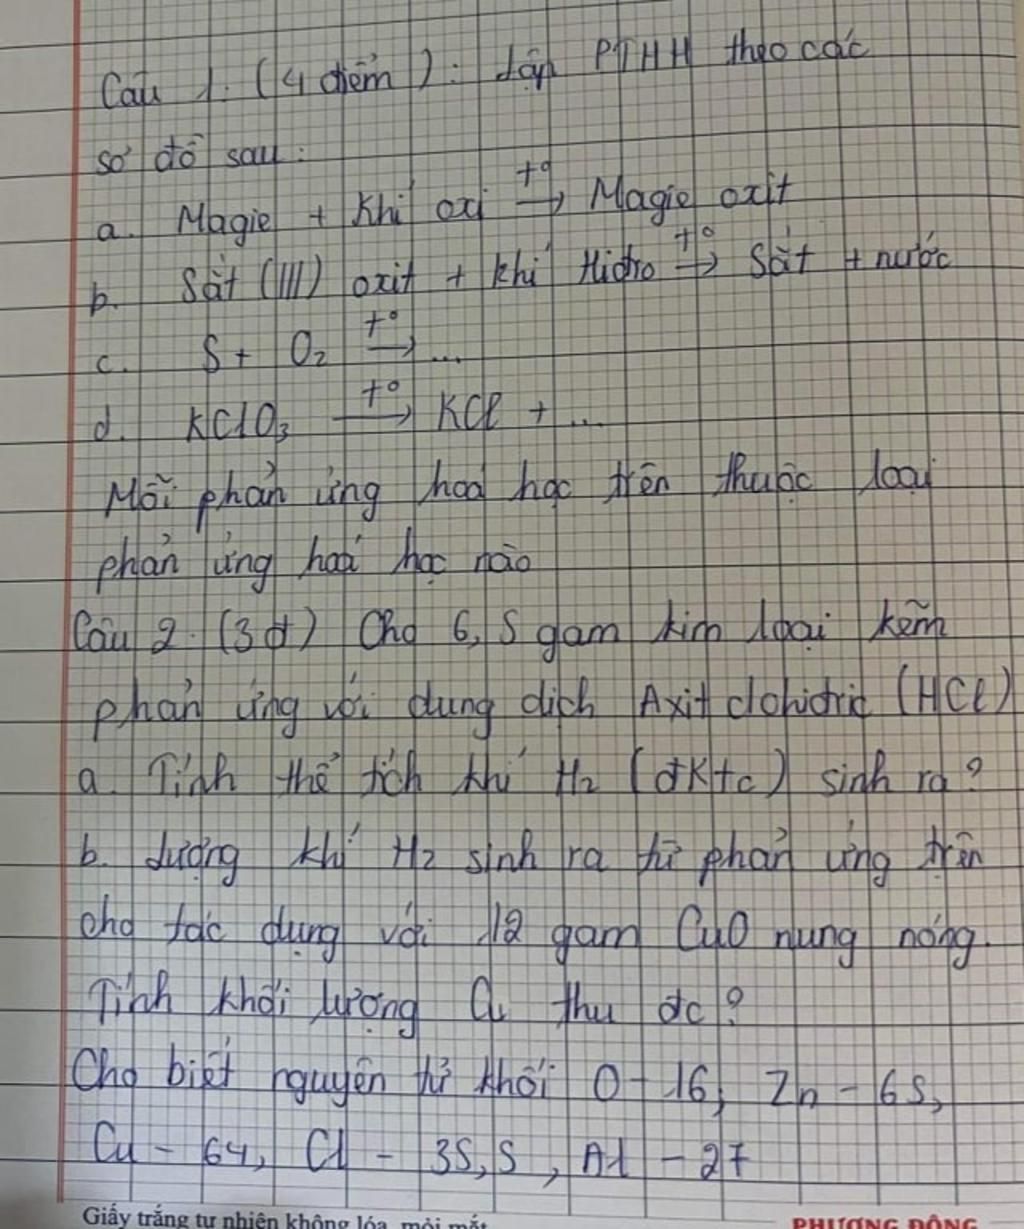 Câu 1. (4 điểm): Lập PTHH theo các
sơ đồ sau:
a. Magie + Khí oxi t°→ Magie oxit
b. Sắt (III) oxit + khí Hidro t°→ Sắt + nước
c. S + O₂ t°→ ...
d. KClO₃ t°→ KCl + ...
Mỗi phản ứng hoá học trên thuộc loại
phản ứng hoá học nào
Câu 2. (3đ) Cho 6,5 gam kim loại kẽm
phản ứng với dung dịch Axit clohidric (HCl)
a. Tính thể tích khí H₂ (đktc) sinh ra?
b. Lượng khí H₂ sinh ra từ phản ứng trên
cho tác dụng với 12 gam CuO nung nóng.
Tính khối lượng Cu thu đc?
Cho biết nguyên tử khối O - 16; Zn - 65,
Cu - 64, Cl - 35,5, Al - 27
Giấy trắng tự nhiên không lóa, mỏi mắt
PHƯƠNG ĐÔNG